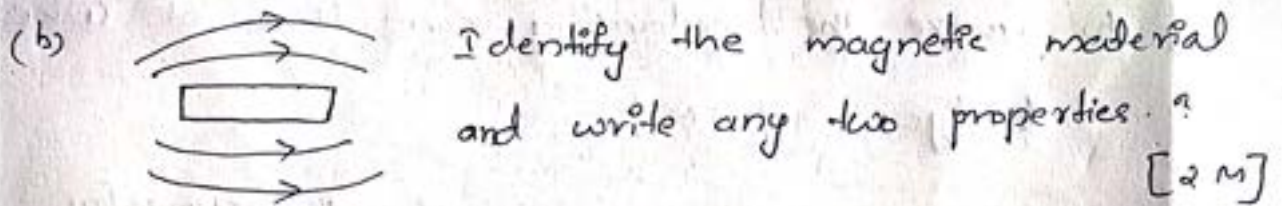 (b) Identify the magnetic material
and write any two properties.?
[2 M]